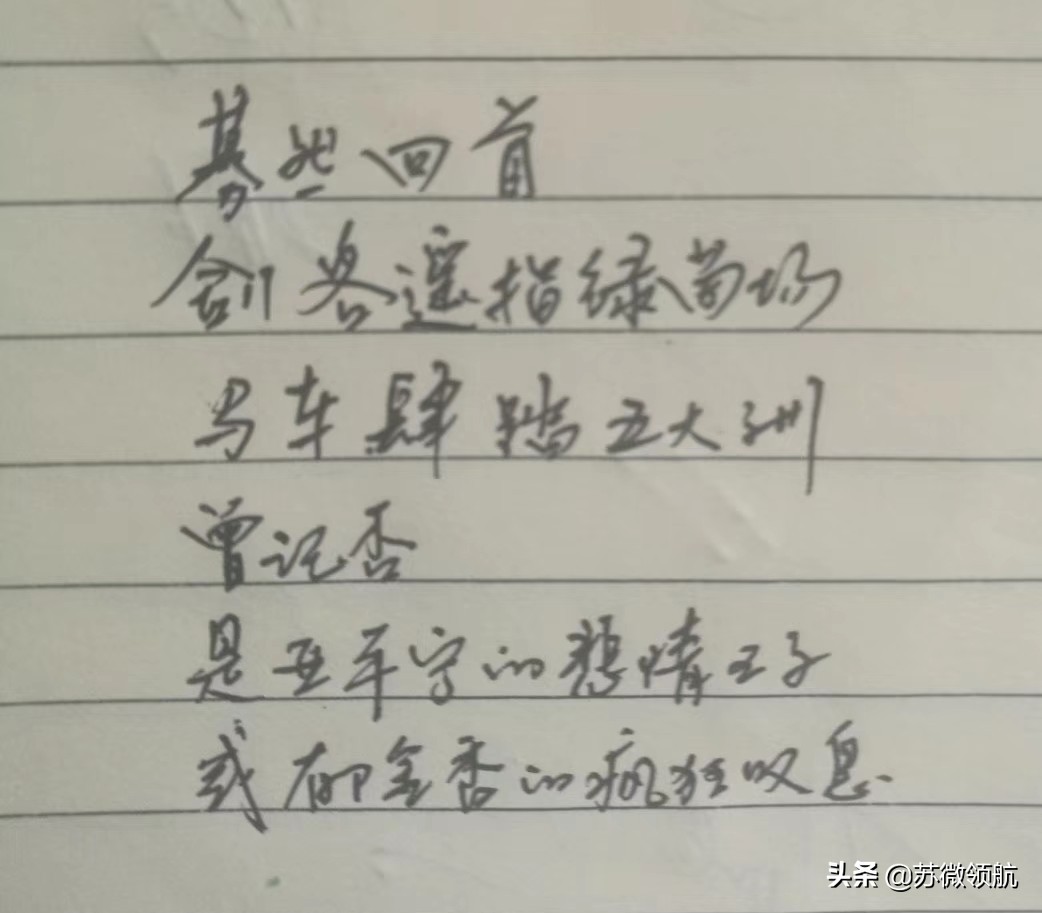 蓦然回首
剑客遥指绿茵场
马车肆踏五大洲
曾记否
是亚平宁的悲情王子
或郁金香的疯狂叹息.
头条 @苏微领航